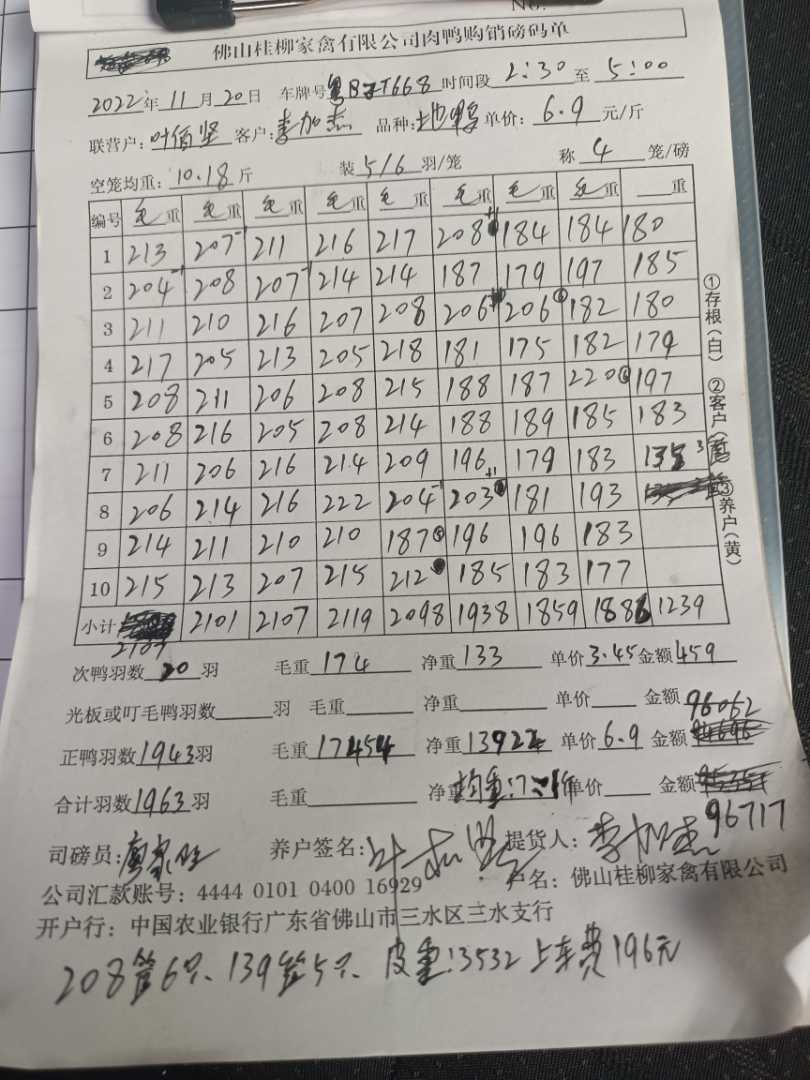 No.
佛山桂柳家禽有限公司肉鸭购销磅码单
2022年11月20日 车牌号粤BT668 时间段2:30至5:00
联营户:叶佰坚 客户:李加杰 品种:地鸭 单价:6.9元/斤
空笼均重:10.18斤 装5/6羽/笼 称4笼/磅
编号 毛重 毛重 毛重 毛重 毛重 毛重 毛重 毛重 重
1 213 207-1 211 216 217 208+1 184 184 180
2 204-1 208 207-1 214 214 187 179 197 185
3 211 210 216 207 208 206 206 182 180
4 217 205 213 205 218 181 175 182 174
5 208 211 206 208 215 188 187 220 197
6 208 216 205 208 214 188 189 185 183
7 211 206 216 214 209 196 179 183 135
8 206 214 216 222 204-1 203+1 181 193
9 214 211 210 210 187 196 196 183
10 215 213 207 215 212 185 183 177
小计 2107 2101 2107 2119 2098 1938 1859 1886 1239
次鸭羽数20羽 毛重174 净重133 单价3.45金额459
光板或叮毛鸭羽数羽 毛重 净重 单价 金额
96062
正鸭羽数1943羽 毛重17454 净重13922 单价6.9 金额
合计羽数1963羽 毛重 净重 均重:7.21斤 单价 金额
96717
司磅员: 养户签名: 提货人:李加杰
公司汇款账号:4444 0101 0400 16929 户名:佛山桂柳家禽有限公司
开户行:中国农业银行广东省佛山市三水区三水支行
208笼6只、139笼5只、皮重:3532 上车费196元
①存根(白) ②客户(红) ③养户(黄)